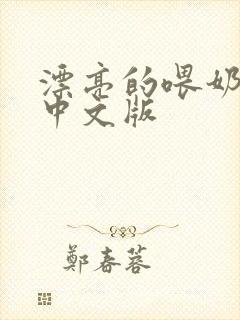 漂亮的喂奶
中文版
鄭春蓉